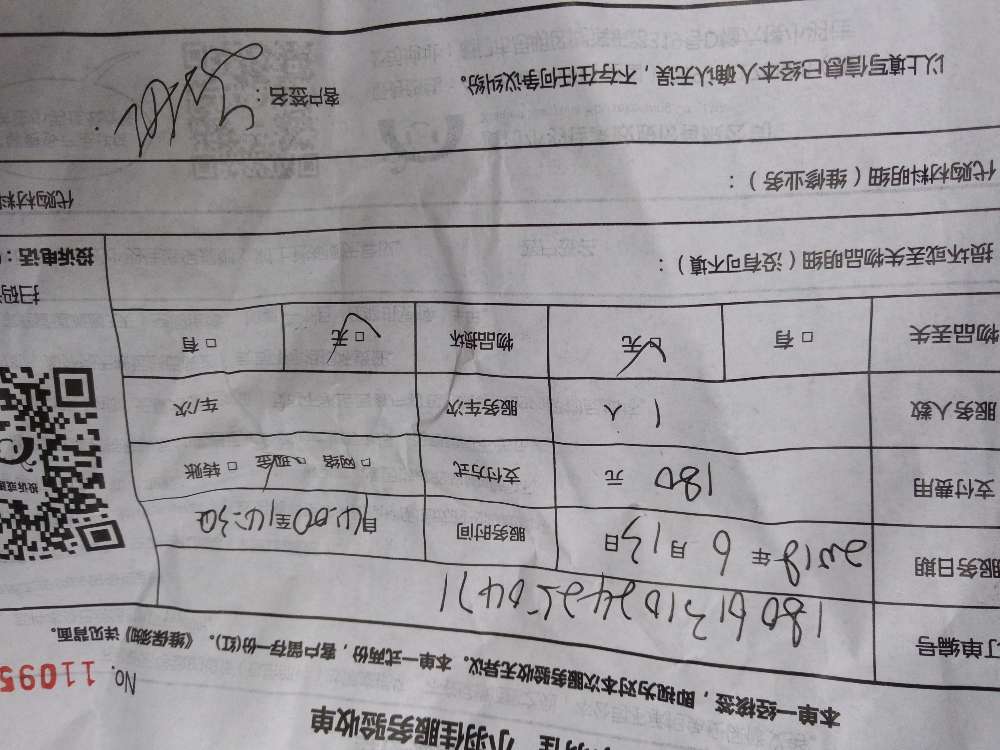 小羽佳服务验收单
No. 11095
本单一经核签，即视为对本次服务验收无异议。本单一式两份，客户留存一份(红)。《维保须知》详见背面。
订单编号 1806131024250471
服务日期 2018年6月13日 服务时间 自14:00至16:30
支付费用 180 元 支付方式 □网络 □现金 □转账
服务人数 1 人 服务车次 车/次
物品丢失 □有 □无 物品损坏 □无 □有
损坏或丢失物品明细（没有可不填）：
投诉电话：
扫码
代购材料明细（维修业务）：
代购材料
以上填写信息已经本人确认无误，不存在任何争议纠纷。
客户签名：